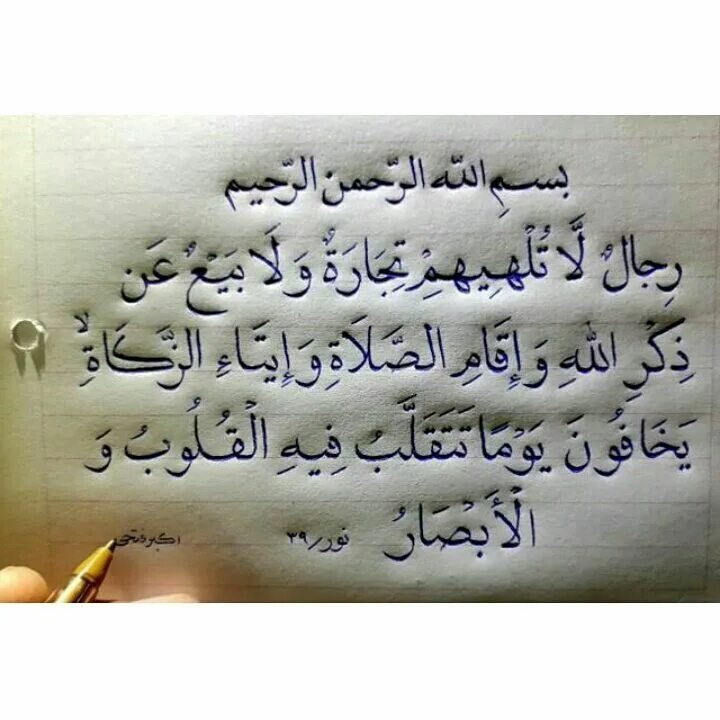 بسمِ الله الرّحمن الرّحيم
رِجالٌ لَّا تُلْهِيهِمْ تِجَارَةٌ وَلَا بَيْعٌ عَن
ذِكْرِ اللهِ وَإِقَامِ الصَّلَاةِ وَإِيتَاءِ الزَّكَاةِ ۙ
يَخَافُونَ يَوْمًا تَتَقَلَّبُ فِيهِ الْقُلُوبُ وَ
الْأَبْصَارُ نور/٣٩ اکبر فتحی